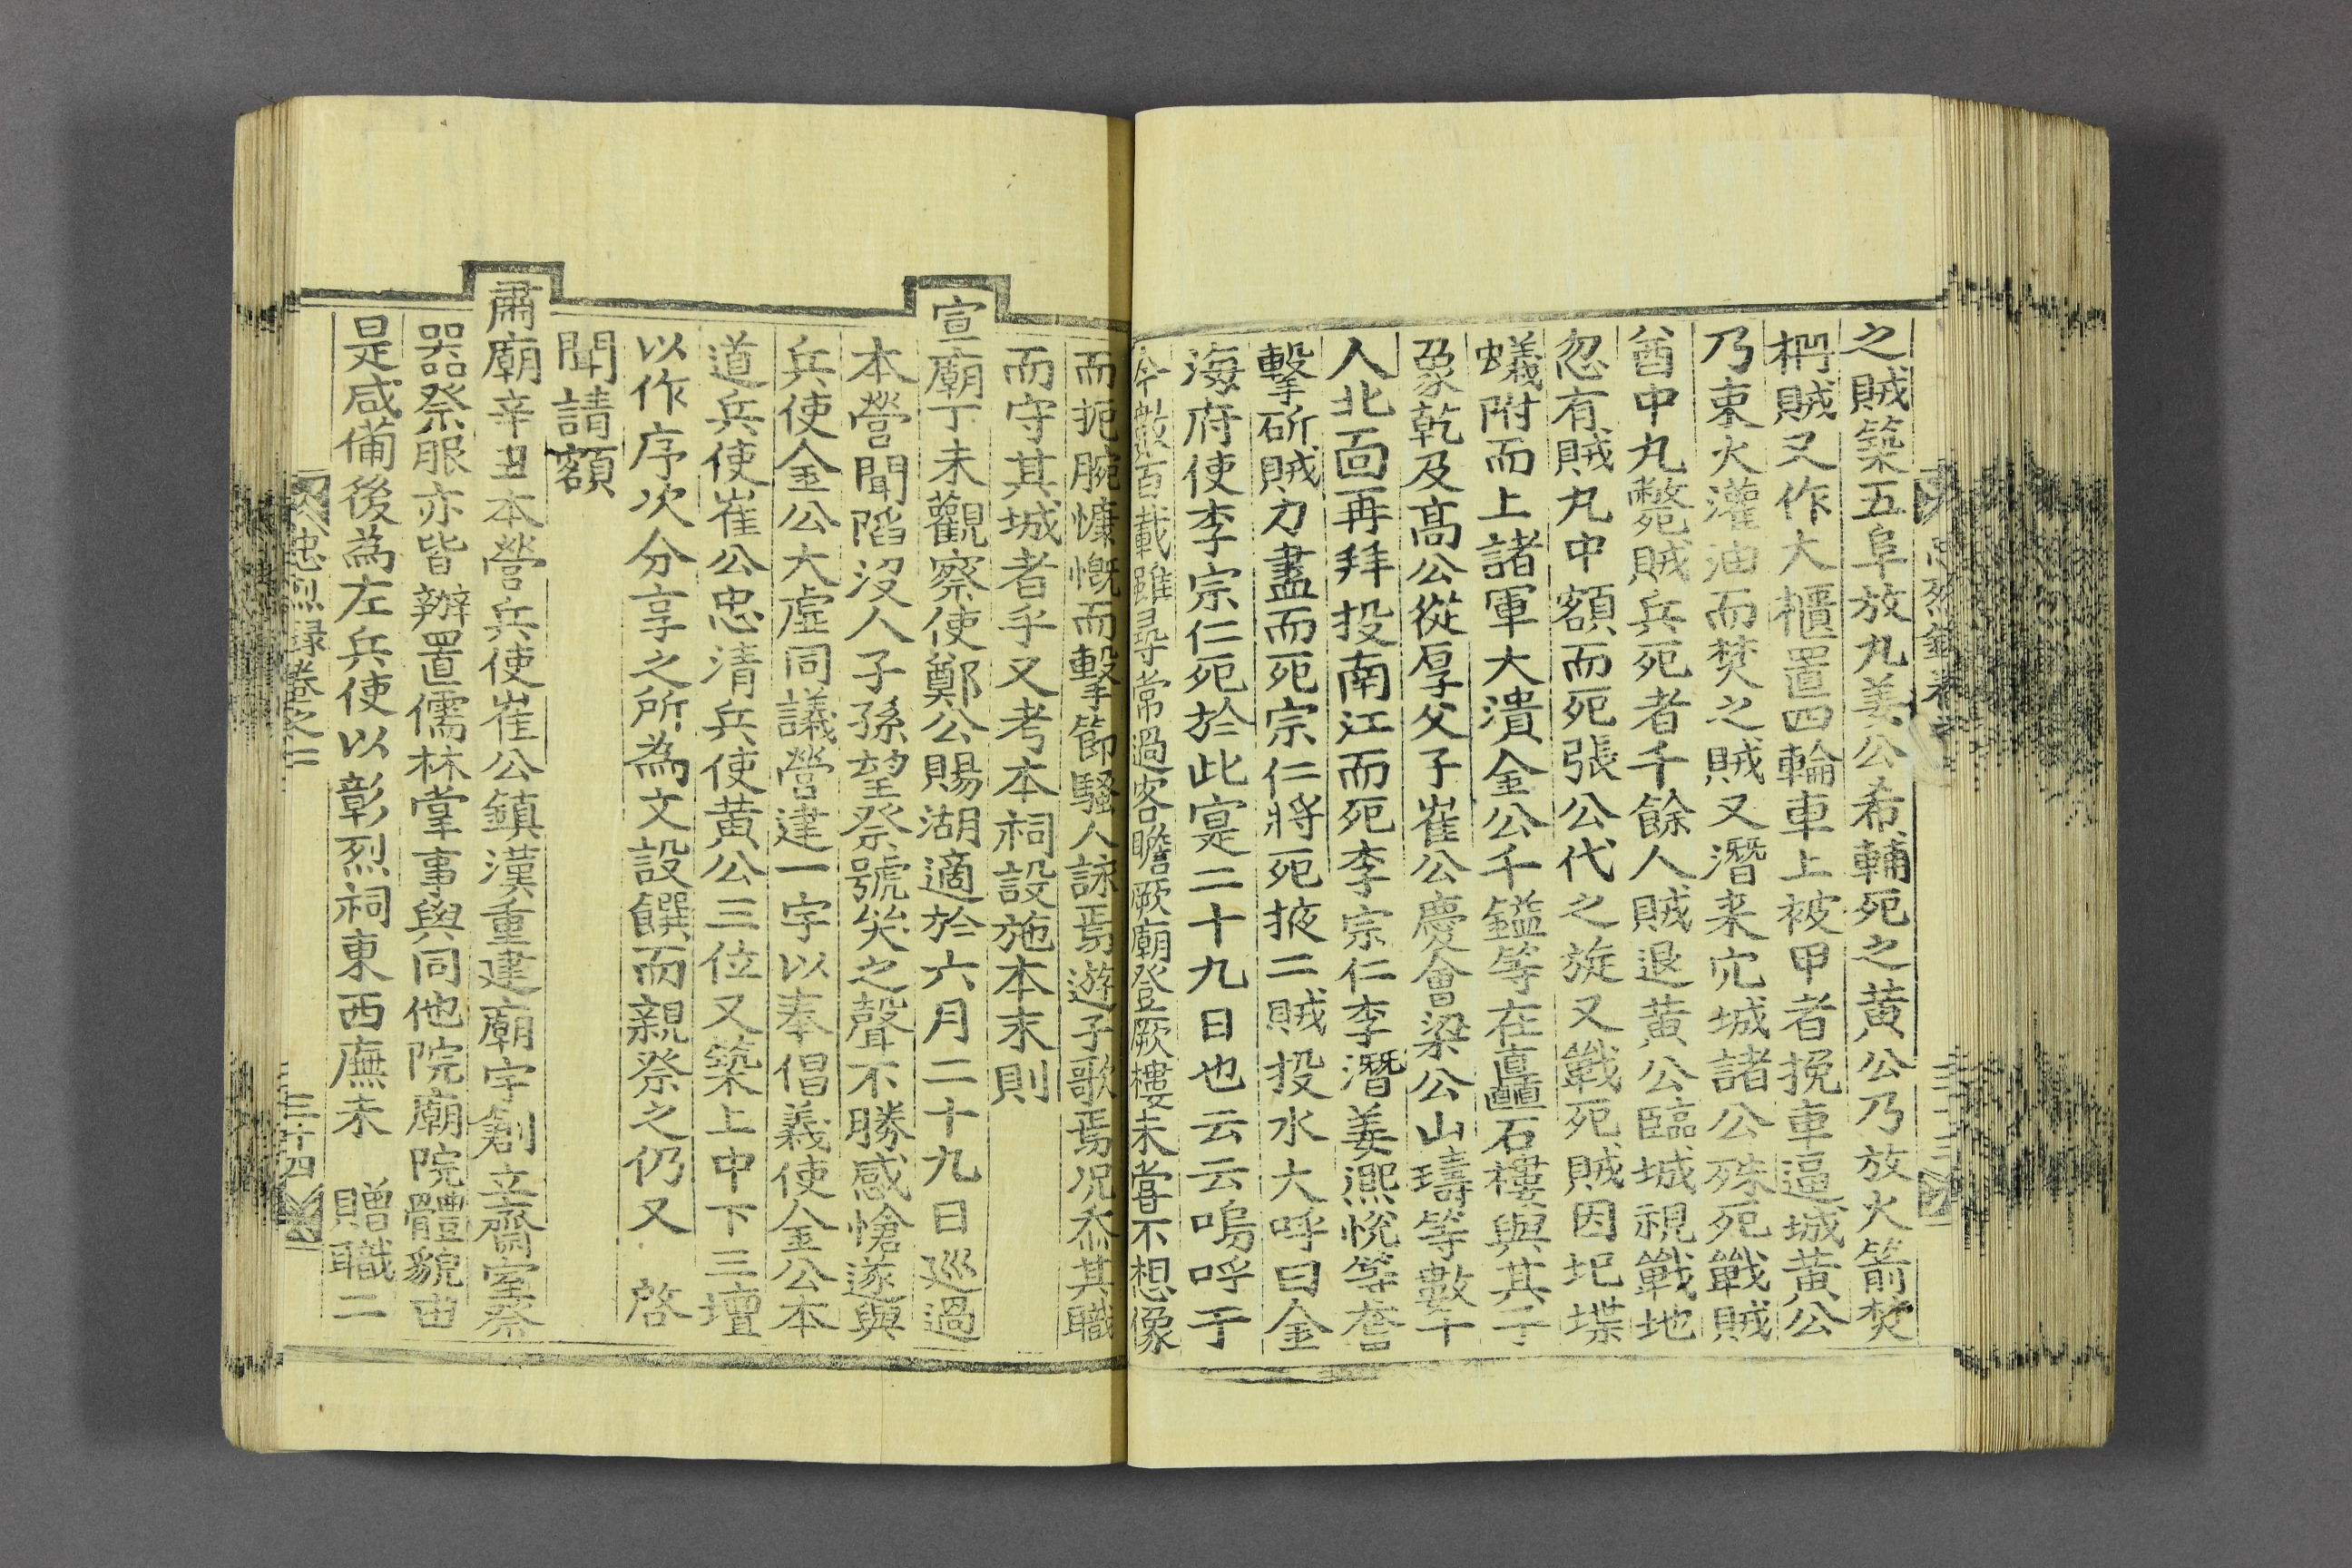 之賊築五阜放丸姜公希輔死之黃公乃放火箭焚
柵賊又作大櫃置四輪車上被甲者挽車逼城黃公
乃束火灌油而焚之賊又潛来穴城諸公殊死戰賊
酋中丸斃賊兵死者千餘人賊退黃公臨城視戰地
忽有賊丸中額而死張公代之旋又戰死賊因圮堞
蟻附而上諸軍大潰金公千鎰等在矗石樓與其子
象乾及高公從厚父子崔公慶會梁公山璹等數十
人北面再拜投南江而死李宗仁李潛姜熙悅等奮
擊斫賊力盡而死宗仁將死挾二賊投水大呼曰金
海府使李宗仁死於此寔二十九日也云云嗚呼于
今數百載雖尋常過客瞻厥廟登厥樓未嘗不想像
而扼腕慷慨而擊節騷人詠焉遊子歌焉况忝其職
而守其城者乎又考本祠設施本末則
宣廟丁未觀察使鄭公賜湖適於六月二十九日廵過
本營聞陷沒人子孫望祭號矣之聲不勝感愴遂與
兵使金公大虛同議營建一宇以奉倡義使金公本
道兵使崔公忠淸兵使黃公三位又築上中下三壇
以作序次分享之所為文設饌而親祭之仍又 啓
聞請額
肅廟辛丑本營兵使崔公鎮漢重建廟宇創立齋室祭
器祭服亦皆辦置儒林掌事與同他院廟院體貌由
是咸備後為左兵使以彰烈祠東西廡未 贈職二
忠烈録卷之二
三十四